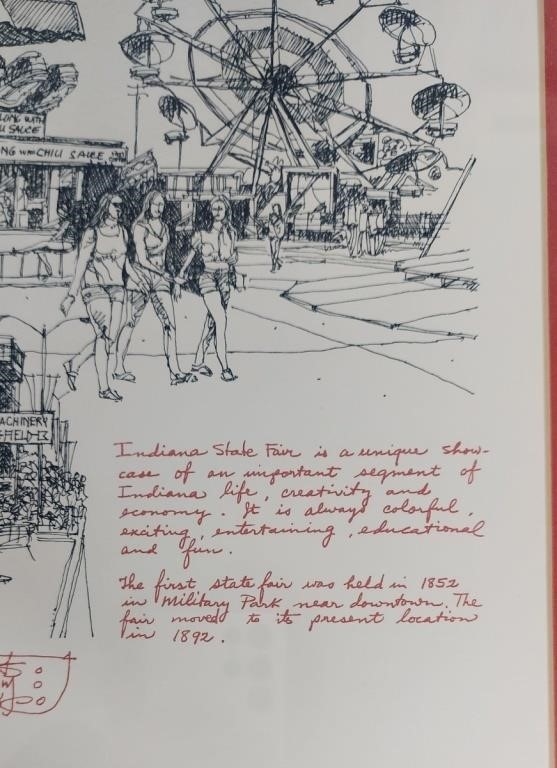 LONG WITH
SAUCE
NG WITH CHILI SAUCE
ACHINERY
FIELD
Indiana State Fair is a unique show-
case of an important segment of
Indiana life, creativity and
economy. It is always colorful,
exciting, entertaining, educational
and fun.
The first state fair was held in 1852
in Military Park near downtown. The
fair moved to its present location
in 1892.